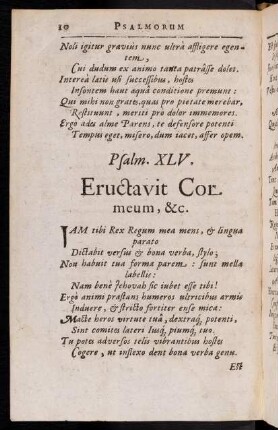 10 PSALMORUM
Noli igitur gravius nunc ultrà affligere egen-
tem,
Cui dudum ex animo tanta patrâsse dolet.
Intereà latis usi successibus, hostes
Insontem haut aquâ conditione premunt:
Qui mihi non grates, quas pro pietate merebar,
Restituunt, meriti pro dolor immemores.
Ergò ades alme Parens, te defensore potenti
Tempus eget, misero, dum jacet, affer opem.
Psalm. XLV.
Eructavit Cor-
meum, &c.
IAM tibi Rex Regum mea mens, & lingua
parato
Dictabit versus & bona verba, stylo;
Non habuit tua forma parem: sunt mella
labellis:
Nam benè Jehovah sic jubet esse tibi!
Ergò animi prastans humeros ultricibus armis
Induere, & stricto fortiter ense mica:
Macte heros virtute tuâ, dextraq́, potenti,
Sint comites lateri Jusq́, piumq́, tuo.
Tu potes adversos telis vibrantibus hostes
Cogere, ut inflexo dent bona verba genu.
Est